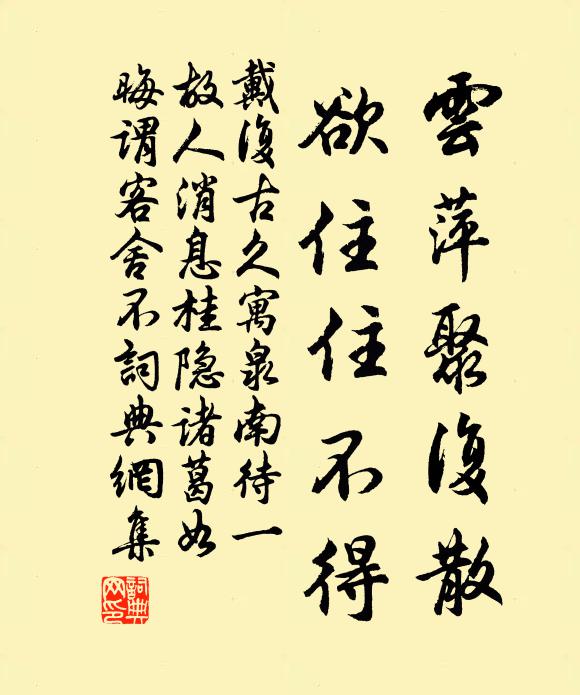 雲萍聚復散
欲住住不得
戴復古久寓泉南待一
故人消息桂隐諸葛如
晦谓客舍不詞典網集
詞典
网印